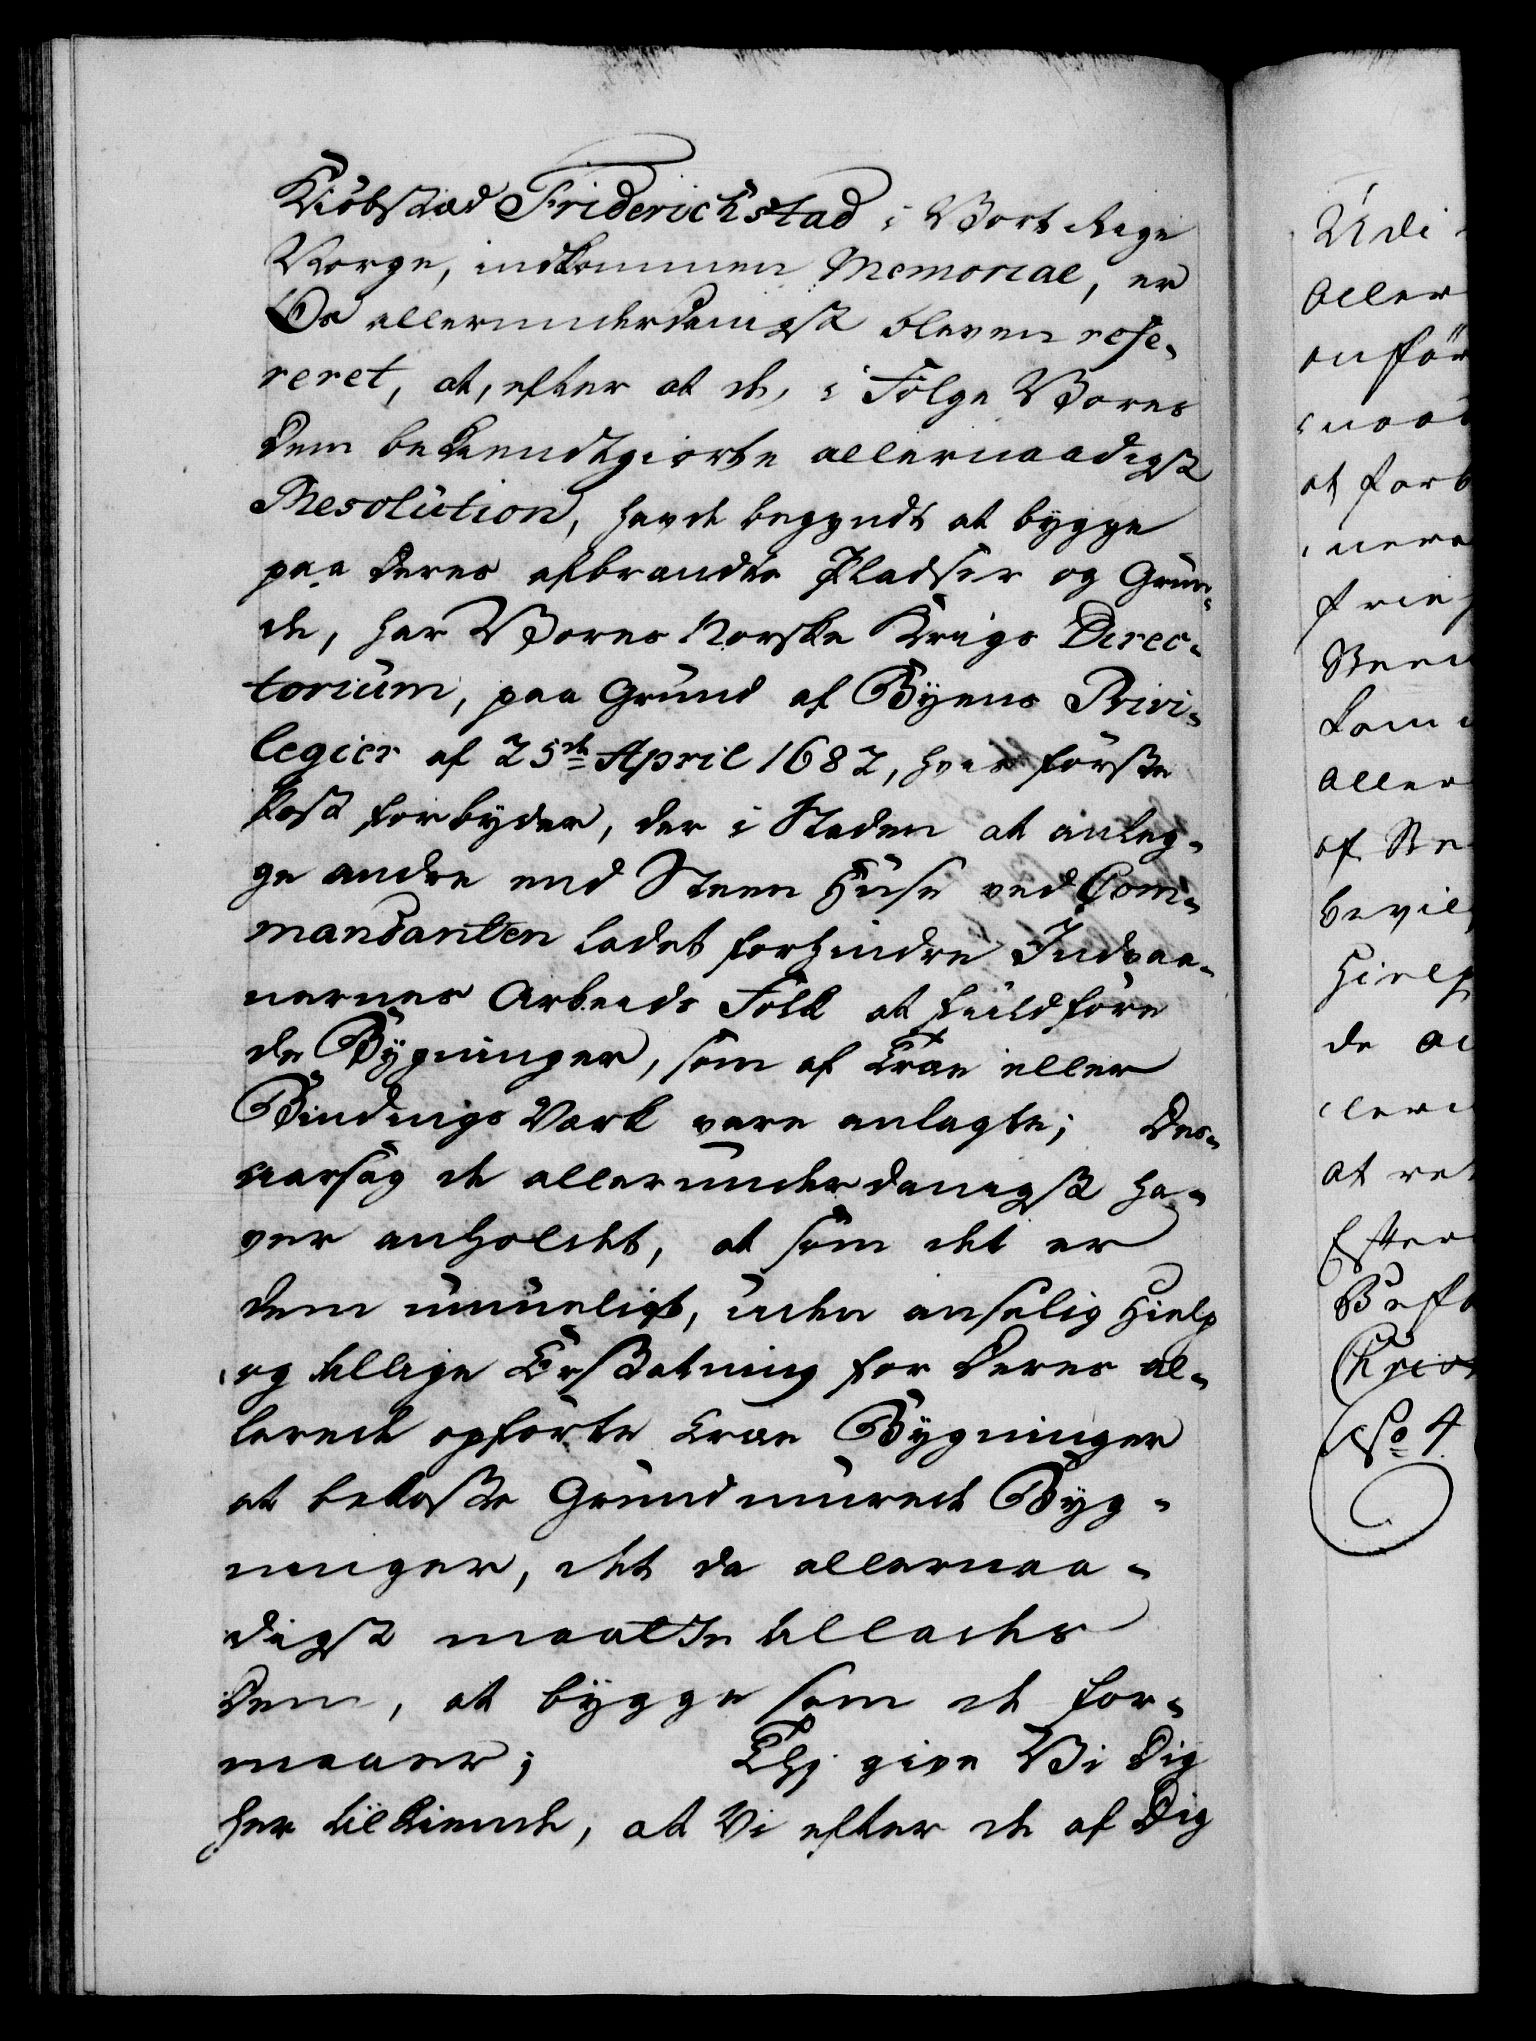 Kiöbstæd Friderichstad i Vort Rige
Norge, indkommen Memorial, er
Os allerunderdanigst bleven refe-
reret, at, efter at de, i Følge Vores
dem bekiendtgiorte allernaadigst
Resolution, havde begyndt at bygge
paa deres afbrændte Pladser og Grun-
de, har Vores Norske Krigs Direc-
torium, paa Grund af Byens Privi-
legier af 25de April 1682, hvis første
Post forbyder, der i Staden at anleg-
ge andre end Steen Huse ved Com-
mandanten ladet forhindre Indvaa-
nernes Arbeids Folk at fuldføre
de Bygninger, som af Træe eller
Bindings Verk vare anlagte; Des-
aarsag de allerunderdanigst ha-
ver anholdet, at som det er
dem umueligt, uden anselig Hielp
og tillige Erstatning for deres al-
lerede opførte træe Bygninger
at bekoste Grundmurede Byg-
ninger, det da allernaa-
digst maatte tillades
dem, at bygge som de for-
maaer; Thj give Vi Dig
her tilkiende, at Vi efter de af Dig
Udi
aller
anför
naad
at forb
nere
frie
Steen
kom
aller
af Ste
bevil
Hielp
de a
lere
at ret
Efter
Befa
Chris
No 4